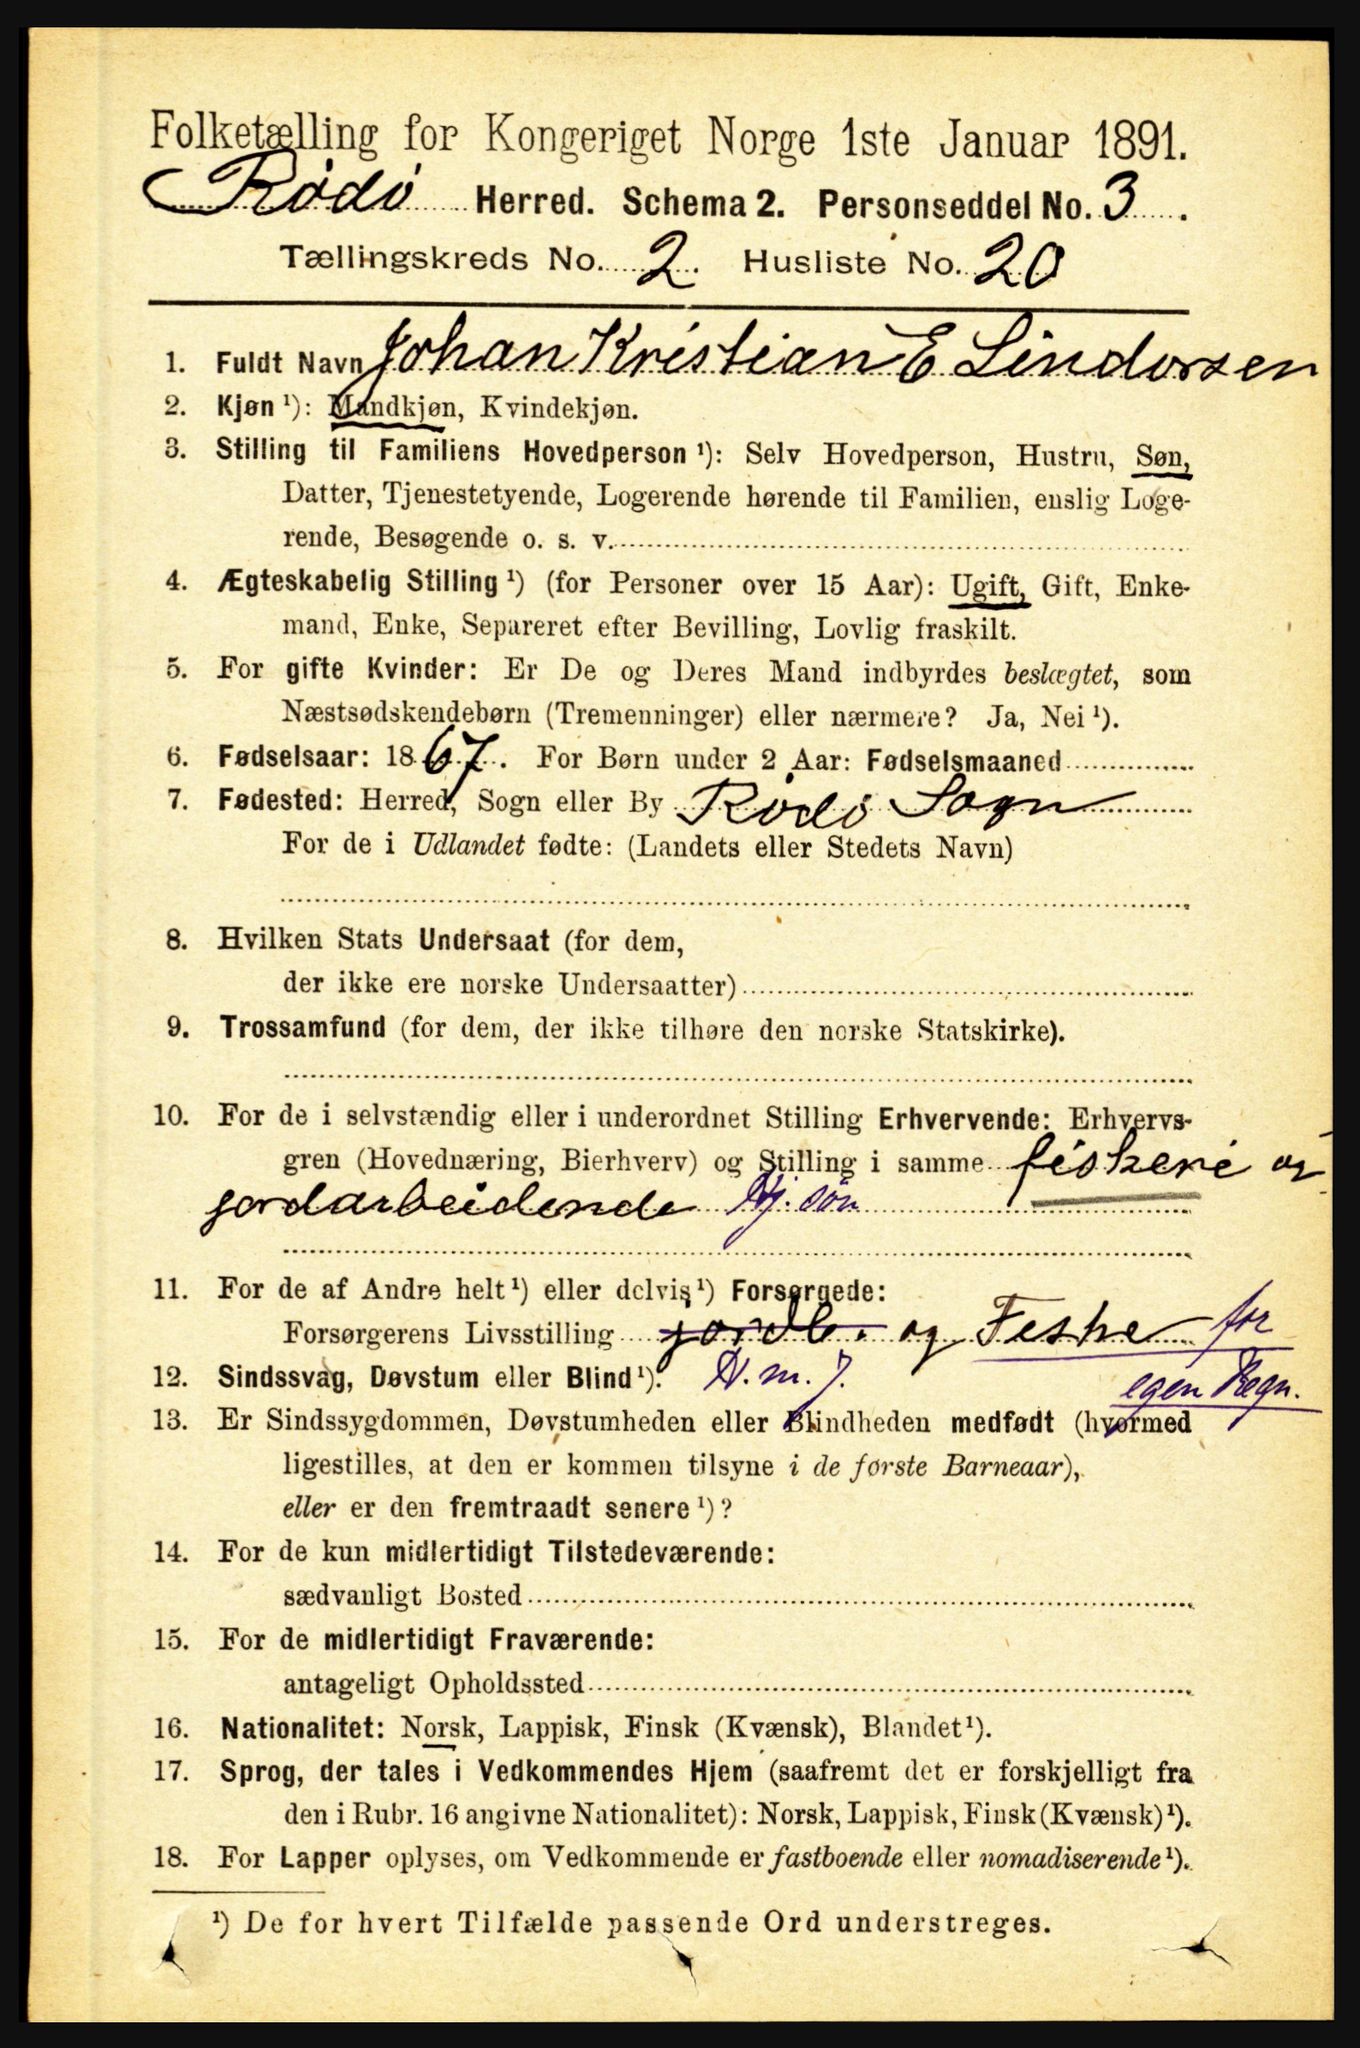 Folketælling for Kongeriget Norge 1ste Januar 1891.
Rødø Herred. Schema 2. Personseddel No. 3.
Tællingskreds No. 2. Husliste No. 20
1. Fuldt Navn Johan Kristian E Lindorsen
2. Kjøn ¹): Mandkjøn, Kvindekjøn.
3. Stilling til Familiens Hovedperson ¹): Selv Hovedperson, Hustru, Søn,
Datter, Tjenestetyende, Logerende hørende til Familien, enslig Loge-
rende, Besøgende o. s. v.
4. Ægteskabelig Stilling ¹) (for Personer over 15 Aar): Ugift, Gift, Enke-
mand, Enke, Separeret efter Bevilling, Lovlig fraskilt.
5. For gifte Kvinder: Er De og Deres Mand indbyrdes beslægtet, som
Næstsødskendebørn (Tremenninger) eller nærmere? Ja, Nei ¹).
6. Fødselsaar: 1867. For Børn under 2 Aar: Fødselsmaaned
7. Fødested: Herred, Sogn eller By Rødø Sogn
For de i Udlandet fødte: (Landets eller Stedets Navn)
8. Hvilken Stats Undersaat (for dem,
der ikke ere norske Undersaatter)
9. Trossamfund (for dem, der ikke tilhøre den norske Statskirke).
10. For de i selvstændig eller i underordnet Stilling Erhvervende: Erhvervs-
gren (Hovednæring, Bierhverv) og Stilling i samme fiskeri og
jordarbeidende Hj. søn
11. For de af Andre helt ¹) eller delvis ¹) Forsørgede:
Forsørgerens Livsstilling jordb. og Fiske for
12. Sindssvag, Døvstum eller Blind ¹). egen Regn.
13. Er Sindssygdommen, Døvstumheden eller Blindheden medfødt (hvormed
ligestilles, at den er kommen tilsyne i de første Barneaar),
eller er den fremtraadt senere ¹)?
14. For de kun midlertidigt Tilstedeværende:
sædvanligt Bosted
15. For de midlertidigt Fraværende:
antageligt Opholdssted
16. Nationalitet: Norsk, Lappisk, Finsk (Kvænsk), Blandet ¹).
17. Sprog, der tales i Vedkommendes Hjem (saafremt det er forskjelligt fra
den i Rubr. 16 angivne Nationalitet): Norsk, Lappisk, Finsk (Kvænsk) ¹).
18. For Lapper oplyses, om Vedkommende er fastboende eller nomadiserende ¹).
¹) De for hvert Tilfælde passende Ord understreges.